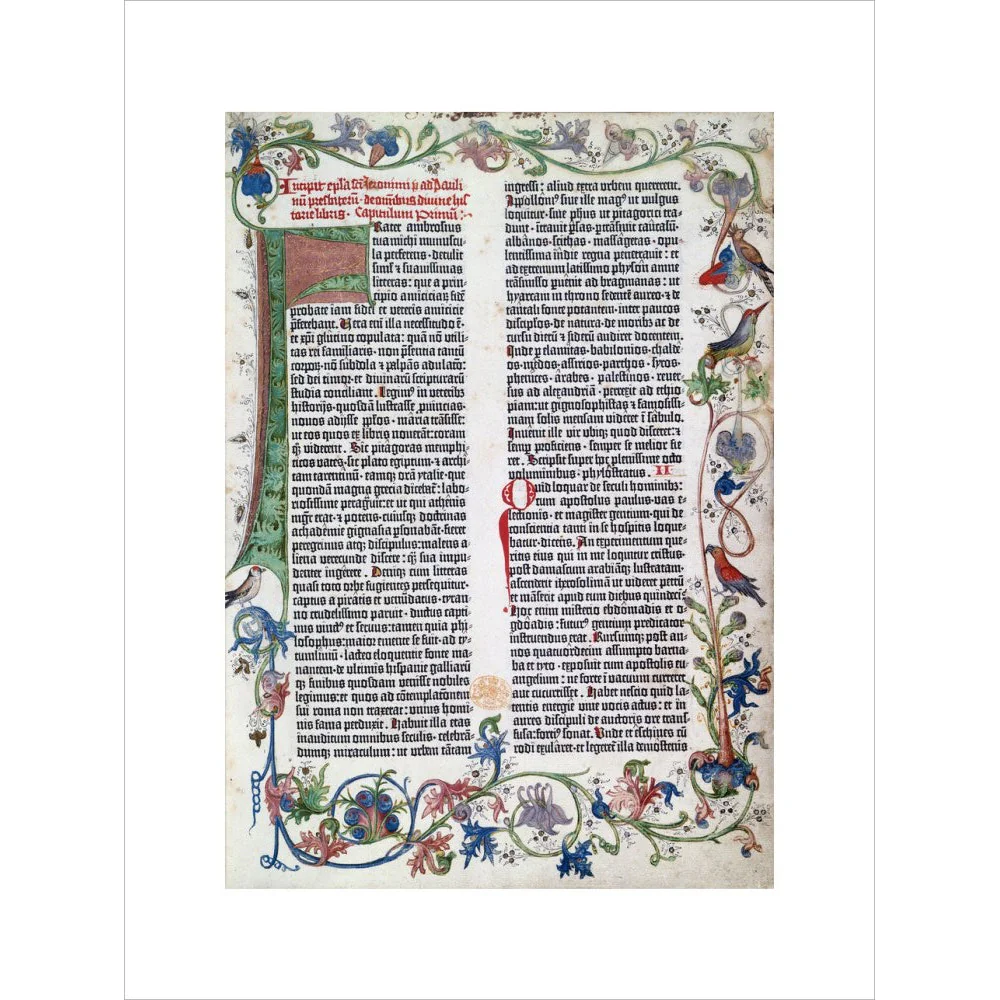 Incipit epl̄a sc̄ti Jeronimi p̄ ad Pauli
nū presbiterū · de om̄ibus divine his
torie libris · Capitulum Primū:
Frater ambrosius
tua michi munuscu-
la preferens · detulit
simł ⁊ suavissimas
litteras: que a prin-
cipio amiciciaꝝ fidē
probate iam fidei et veteris amicicie
p̄ferebant. Vera em̄ illa necessitudo ē ·
et xp̄i glutino copulata: quam nō utili-
tas rei familiaris · non p̄sentia tantū
corpoꝝ · nō subdola ⁊ palpās adulatō:
sed dei timor · et divinarū scripturarū
studia conciliant. Legimꝰ in veterib̄s
historijs · quosdā lustrasse ꝓvincias ·
novos adijsse pp̄los · maria transisse:
ut eos quos ex libris noverāt: coram
qꝫ viderent. Sic pitagoras memphi-
ticos vates · sic plato egiptum · ⁊ archi-
tam tarentinū · eamqꝫ orā ytalie · que
quondā magna grecia diceba⁊: labo-
riosissime peragravit: et ut qui athenis
mgr̄ erat · ⁊ potens · cuiusqꝫ doctrinas
achademie gignasia ꝑsonabāt · fieret
peregrinus atqꝫ discipulus: malens a-
liena verecunde discere: qꝫ̄ sua impu-
denter ingerere. Deniqꝫ cum litteras
quasi toto orbe fugientes persequitur ·
captus a piratis et venūdatus · tyran-
no crudelissimo paruit · ductus capti-
vus vinctꝰ et servus: tamen quia phi-
losophus: maior emente se fuit · ad ty-
tumlivium · lacteo eloquentie fonte ma-
nantem · de ultimis hispanie galliarū
qꝫ finibus quosdam venisse nobiles
legimus: et quos ad cōtemplacōnem
sui roma non traxerat: unius homi-
nis fama perduxit. Habuit illa etas
inauditum omnibus seculis · celebrā-
dumqꝫ miraculum: ut urbem tātam
ingressi: aliud extra urbem quererent.
Appolloniꝰ sive ille magꝰ ut vulgus
loquitur · sive ph̄us ut pitagorici tra-
dunt · intravit ꝑsas · ꝑtrāsivit caucasū ·
albānos · scithas · massagetas · opu-
lentissima indie regna penetravit: et
ad extremum latissimo physon amne
trāsmisso ꝑvenit ad bragmanas: ut
hyarcam in throno sedentē aureo · ⁊ de
tantali fonte potantem · inter paucos
discipl̄os · de natura · de moribꝫ ac de
cursu dierū ⁊ siderū audiret docentem.
Inde ꝑ elamitas · babilonios · chalde-
os · medos · assirios · parthos · syros ·
phenices · arabes · palestinos · rever-
sus ad alexandriā · perrexit ad ethio-
piam: ut gignosophistas ⁊ famosissi-
mam solis mensam videret ī sabulo.
Invenit ille vir ubiqꝫ quod disceret: ⁊
semꝑ proficiens · semper se melior fie-
ret. Scripsit super hoc plenissime octo
voluminibus · phylostratus. II
Quid loquar de seculi hominib̄s:
cum apostolus paulus · vas e-
lectionis · et magister gentium · qui de
consciencia tanti in se hospitis loque-
batur · dicens. An experimentum que-
ritis eius qui in me loquitur cristus:
post damascum arabiāqꝫ lustratam ·
ascenderit iherosolimā ut videret petrū
et māserit apud eum diebus quindeci.
Hoc enim misterio ebdomadis et o-
gdoadis: futurꝰ gentium predicator
instruendus erat. Rursumqꝫ post an-
nos quatuordecim assumpto barna-
ba et tyto · exposuit cum apostolis eu-
angelium: ne forte ī vacuum curreret
aut cucurrisset. Habet nescio quid la-
tentis energie vive vocis actus: et in
aures discipuli de auctoris ore trans-
fusa: forciꝰ sonat. Unde et eschines cū
rodi exularet · et legeret illa demostenis